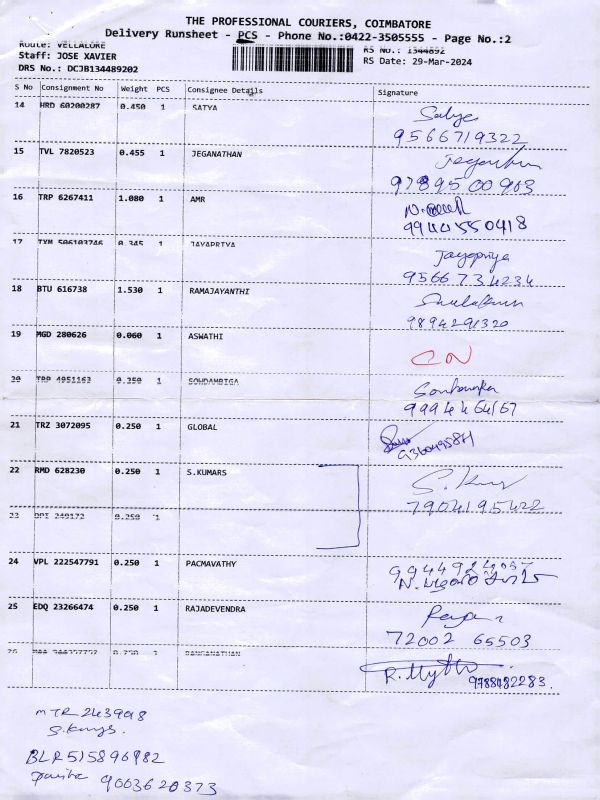 THE PROFESSIONAL COURIERS, COIMBATORE
Delivery Runsheet - PCS - Phone No.:0422-3505555 - Page No.:2
Route: VELLALORE RS No.: 1344892
Staff: JOSE XAVIER RS Date: 29-Mar-2024
DRS No.: DCJB134489202
S No Consignment No Weight PCS Consignee Details Signature
14 HRD 60200287 0.450 1 SATYA Satya
9566719322
15 TVL 7820523 0.455 1 JEGANATHAN
9789500903
16 TRP 6267411 1.080 1 AMR
9944550418
17 TXM 506103746 0.345 1 JAYAPRIYA Jayapriya
9566734234
18 BTU 616738 1.530 1 RAMAJAYANTHI
9894291320
19 MGD 280626 0.060 1 ASWATHI CN
20 TRP 4951163 0.250 1 SOWDAMBIGA
99944 64167
21 TRZ 3072095 0.250 1 GLOBAL
22 RMD 628230 0.250 1 S.KUMARS S. Kumar
7904195422
23 0.250 1
24 VPL 222547791 0.250 1 PACMAVATHY
25 EDQ 23266474 0.250 1 RAJADEVENDRA
72002 65503
26 0.250 1 RANGANATHAN R. Mytho
9788482283.
MTR 243998
S. Kumys.
BLR 515896982
9003620373